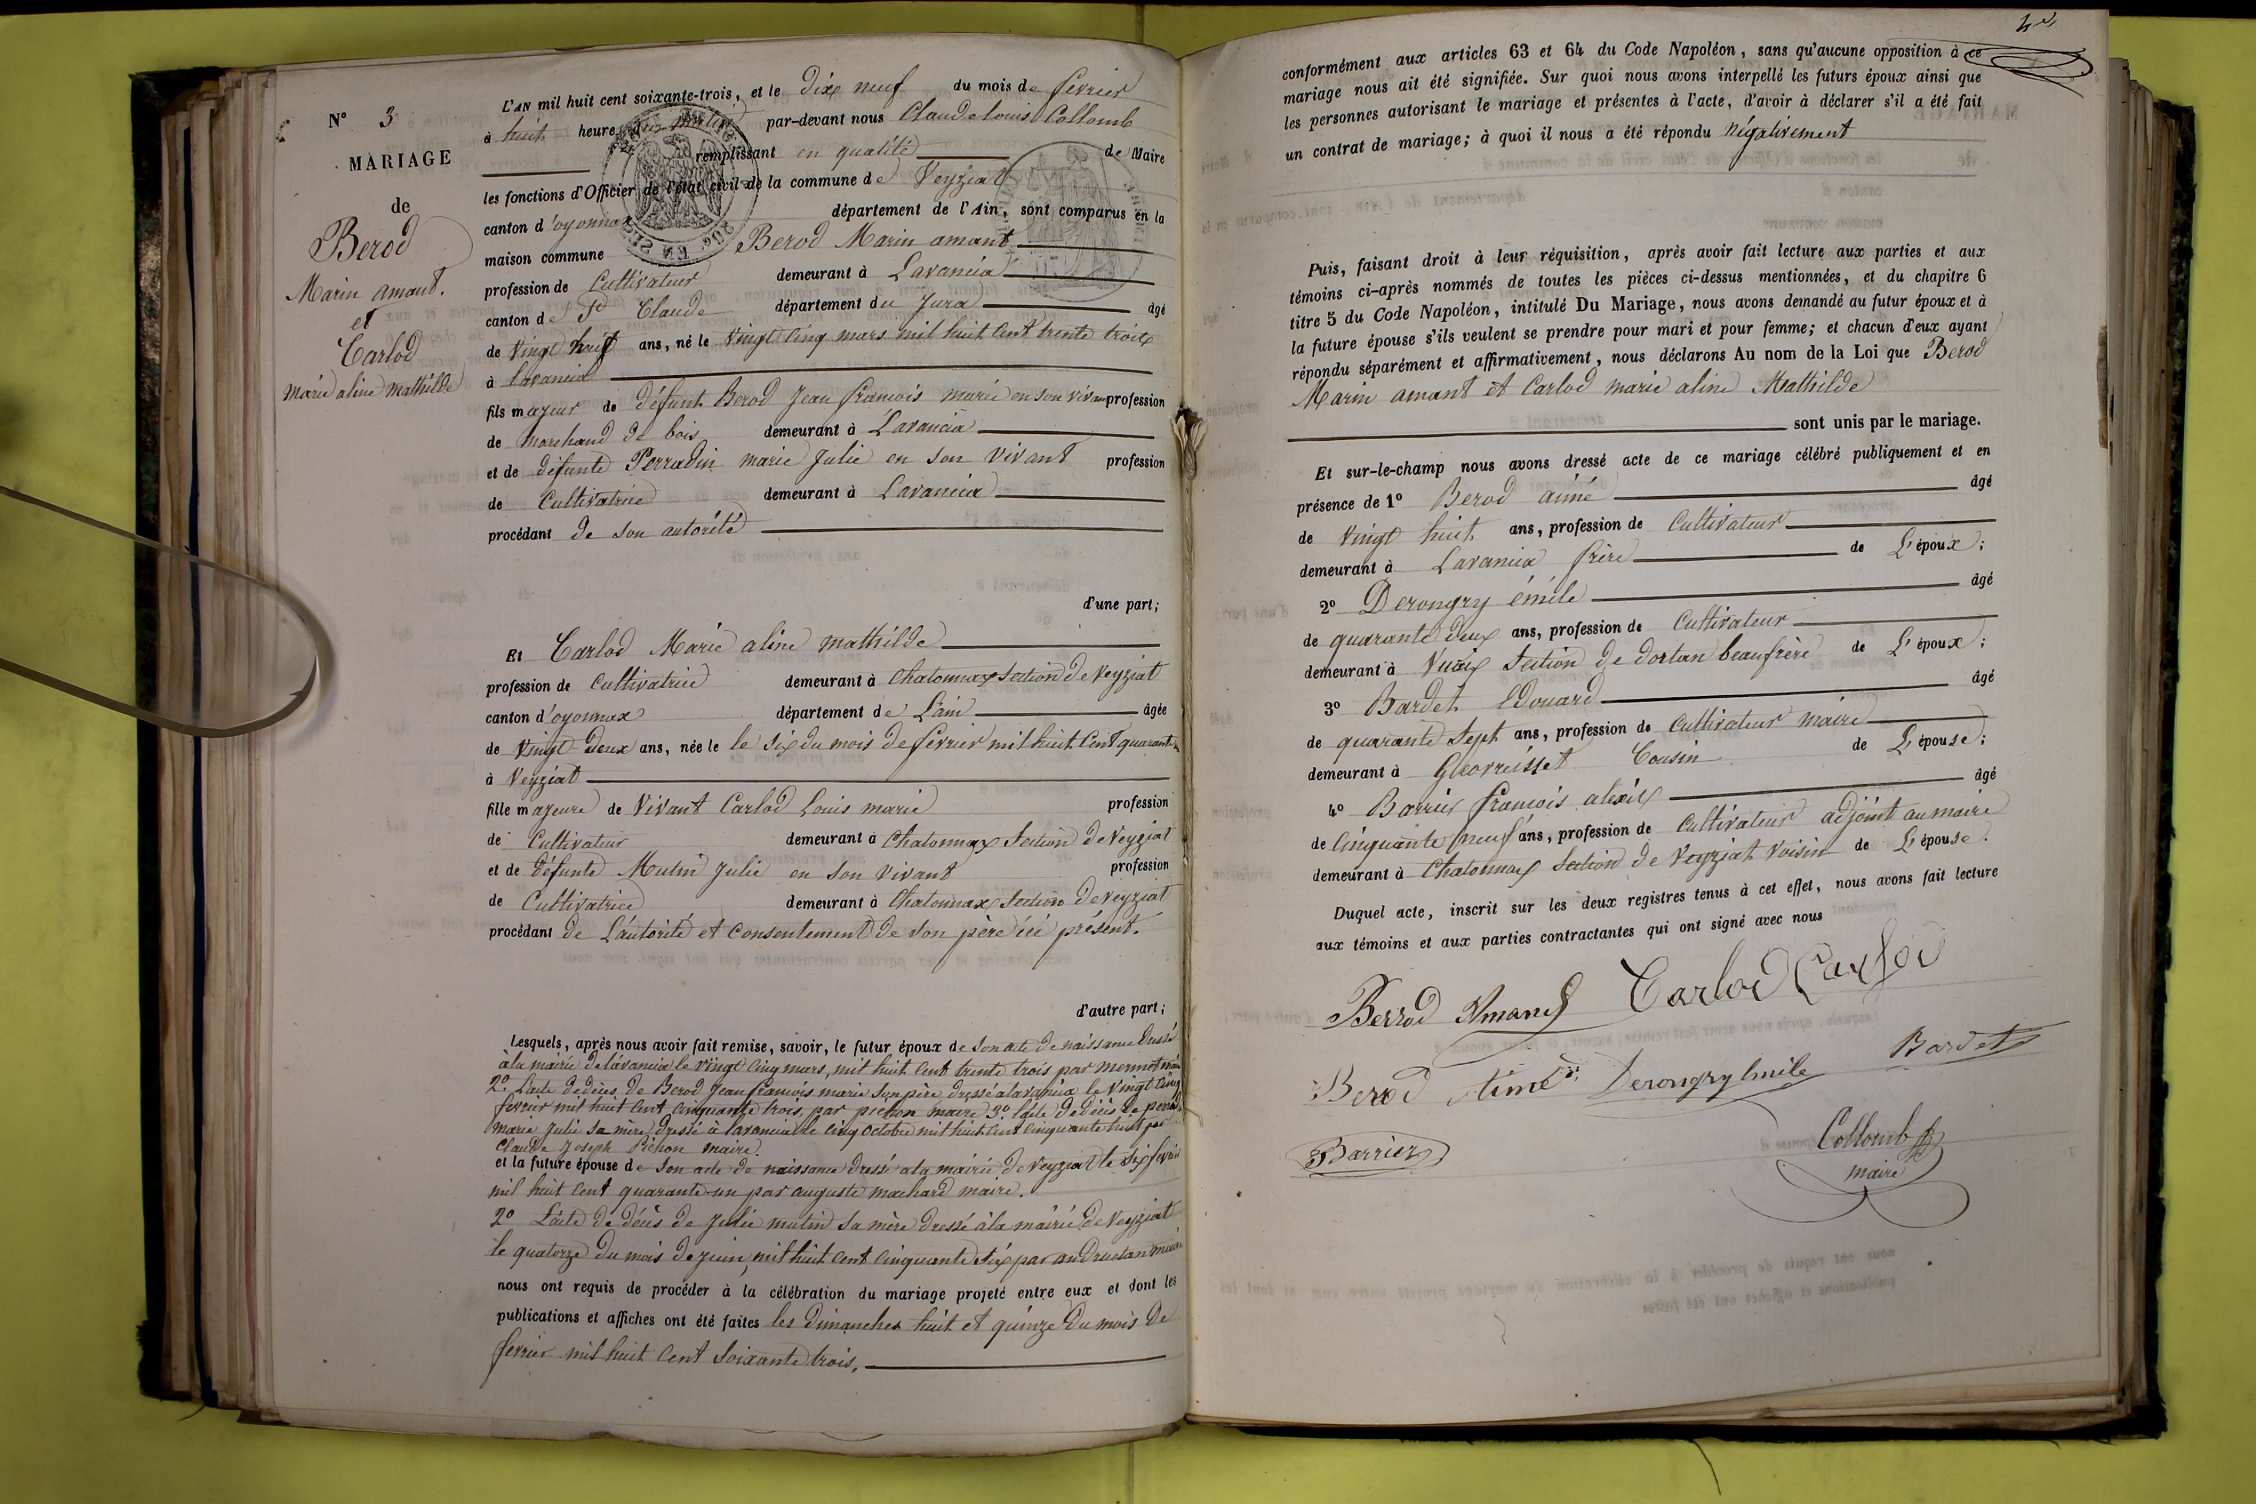 N° 3
MARIAGE
de
Berod
Marin amant.
et
Carlod
marie aline mathilde
L'AN mil huit cent soixante-trois, et le dix neuf du mois de fevrier
à huit heures du matin par-devant nous Claude louis Collomb
remplissant en qualité de Maire
les fonctions d'Officier de l'état civil de la commune de Veyziat
canton d'oyonnax département de l'Ain, sont comparus en la
maison commune Berod Marin amant
profession de Cultivateur demeurant à Lavancia
canton de St Claude département du Jura âgé
de Vingt neuf ans, né le Vingt cinq mars mil huit cent trente trois
à lavancia
fils majeur de défunt Berod Jean francois marie en son vivant profession
de marchand de bois demeurant à Lavancia
et de défunte Perradin marie Julie en son vivant profession
de Cultivatrice demeurant à Lavancia
procédant de son autorité
d'une part;
Et Carlod Marie aline mathilde
profession de Cultivatrice demeurant à Chatonnax section de Veyziat
canton d'oyonnax département de L'ain âgée
de Vingt deux ans, née le le six du mois de fevrier mil huit cent quarante un
à Veyziat
fille majeure de Vivant Carlod Louis marie profession
de Cultivateur demeurant à Chatonnax section de Veyziat
et de défunte Mutin Julie en son vivant profession
de Cultivatrice demeurant à Chatonnax section de veyziat
procédant de L'autorité et consentement de son père ici présent.
d'autre part;
Lesquels, après nous avoir fait remise, savoir, le futur époux de son acte de naissance dressé
à la mairie de lavancia le vingt cinq mars, mil huit cent trente trois par mermet maire
2° L'acte de décès de Berod Jean francois marie son père dressé a lavancia le vingt cinq
fevrier mil huit cent cinquante trois, par pichon maire 3° l'acte de décès de perradin
marie Julie sa mère dressé à lavancia le cinq octobre mil huit cent cinquante huit par
Claude Joseph Pichon maire.
et la future épouse de son acte de naissance dressé a la mairie de Veyziat le six fevrier
mil huit cent quarante un par auguste machard maire.
2° L'acte de décès de Julie mutin sa mère dressé à la mairie de Veyziat
le quatorze du mois de juin, mil huit cent cinquante six par andruetan maire
nous ont requis de procéder à la célébration du mariage projeté entre eux et dont les
publications et affiches ont été faites les dimanches huit et quinze du mois de
fevrier mil huit cent soixante trois.
conformément aux articles 63 et 64 du Code Napoléon, sans qu'aucune opposition à ce
mariage nous ait été signifiée. Sur quoi nous avons interpellé les futurs époux ainsi que
les personnes autorisant le mariage et présentes à l'acte, d'avoir à déclarer s'il a été fait
un contrat de mariage; à quoi il nous a été répondu négativement
Puis, faisant droit à leur réquisition, après avoir fait lecture aux parties et aux
témoins ci-après nommés de toutes les pièces ci-dessus mentionnées, et du chapitre 6
titre 5 du Code Napoléon, intitulé Du Mariage, nous avons demandé au futur époux et à
la future épouse s'ils veulent se prendre pour mari et pour femme; et chacun d'eux ayant
répondu séparément et affirmativement, nous déclarons Au nom de la Loi que Berod
Marin amant et Carlod marie aline Mathilde
sont unis par le mariage.
Et sur-le-champ nous avons dressé acte de ce mariage célébré publiquement et en
présence de 1° Berod aimé âgé
de Vingt huit ans, profession de Cultivateur
demeurant à Lavancia frère de L'époux;
2° Derongry émile âgé
de quarante deux ans, profession de Cultivateur
demeurant à Vuaix section de dortan beaufrère de L'époux;
3° Bardet Edouard âgé
de quarante sept ans, profession de cultivateur maire
demeurant à Géovreisset Cousin de L'épouse;
4° Barrier francois alexis âgé
de Cinquante neuf ans, profession de Cultivateur adjoint au maire
demeurant à Chatonnax section de Veyziat voisin de L'épouse.
Duquel acte, inscrit sur les deux registres tenus à cet effet, nous avons fait lecture
aux témoins et aux parties contractantes qui ont signé avec nous
Berrod Amand Carlod Carlod
Berod Aimé Derongry Emile Bardet
Barrier Collomb
maire